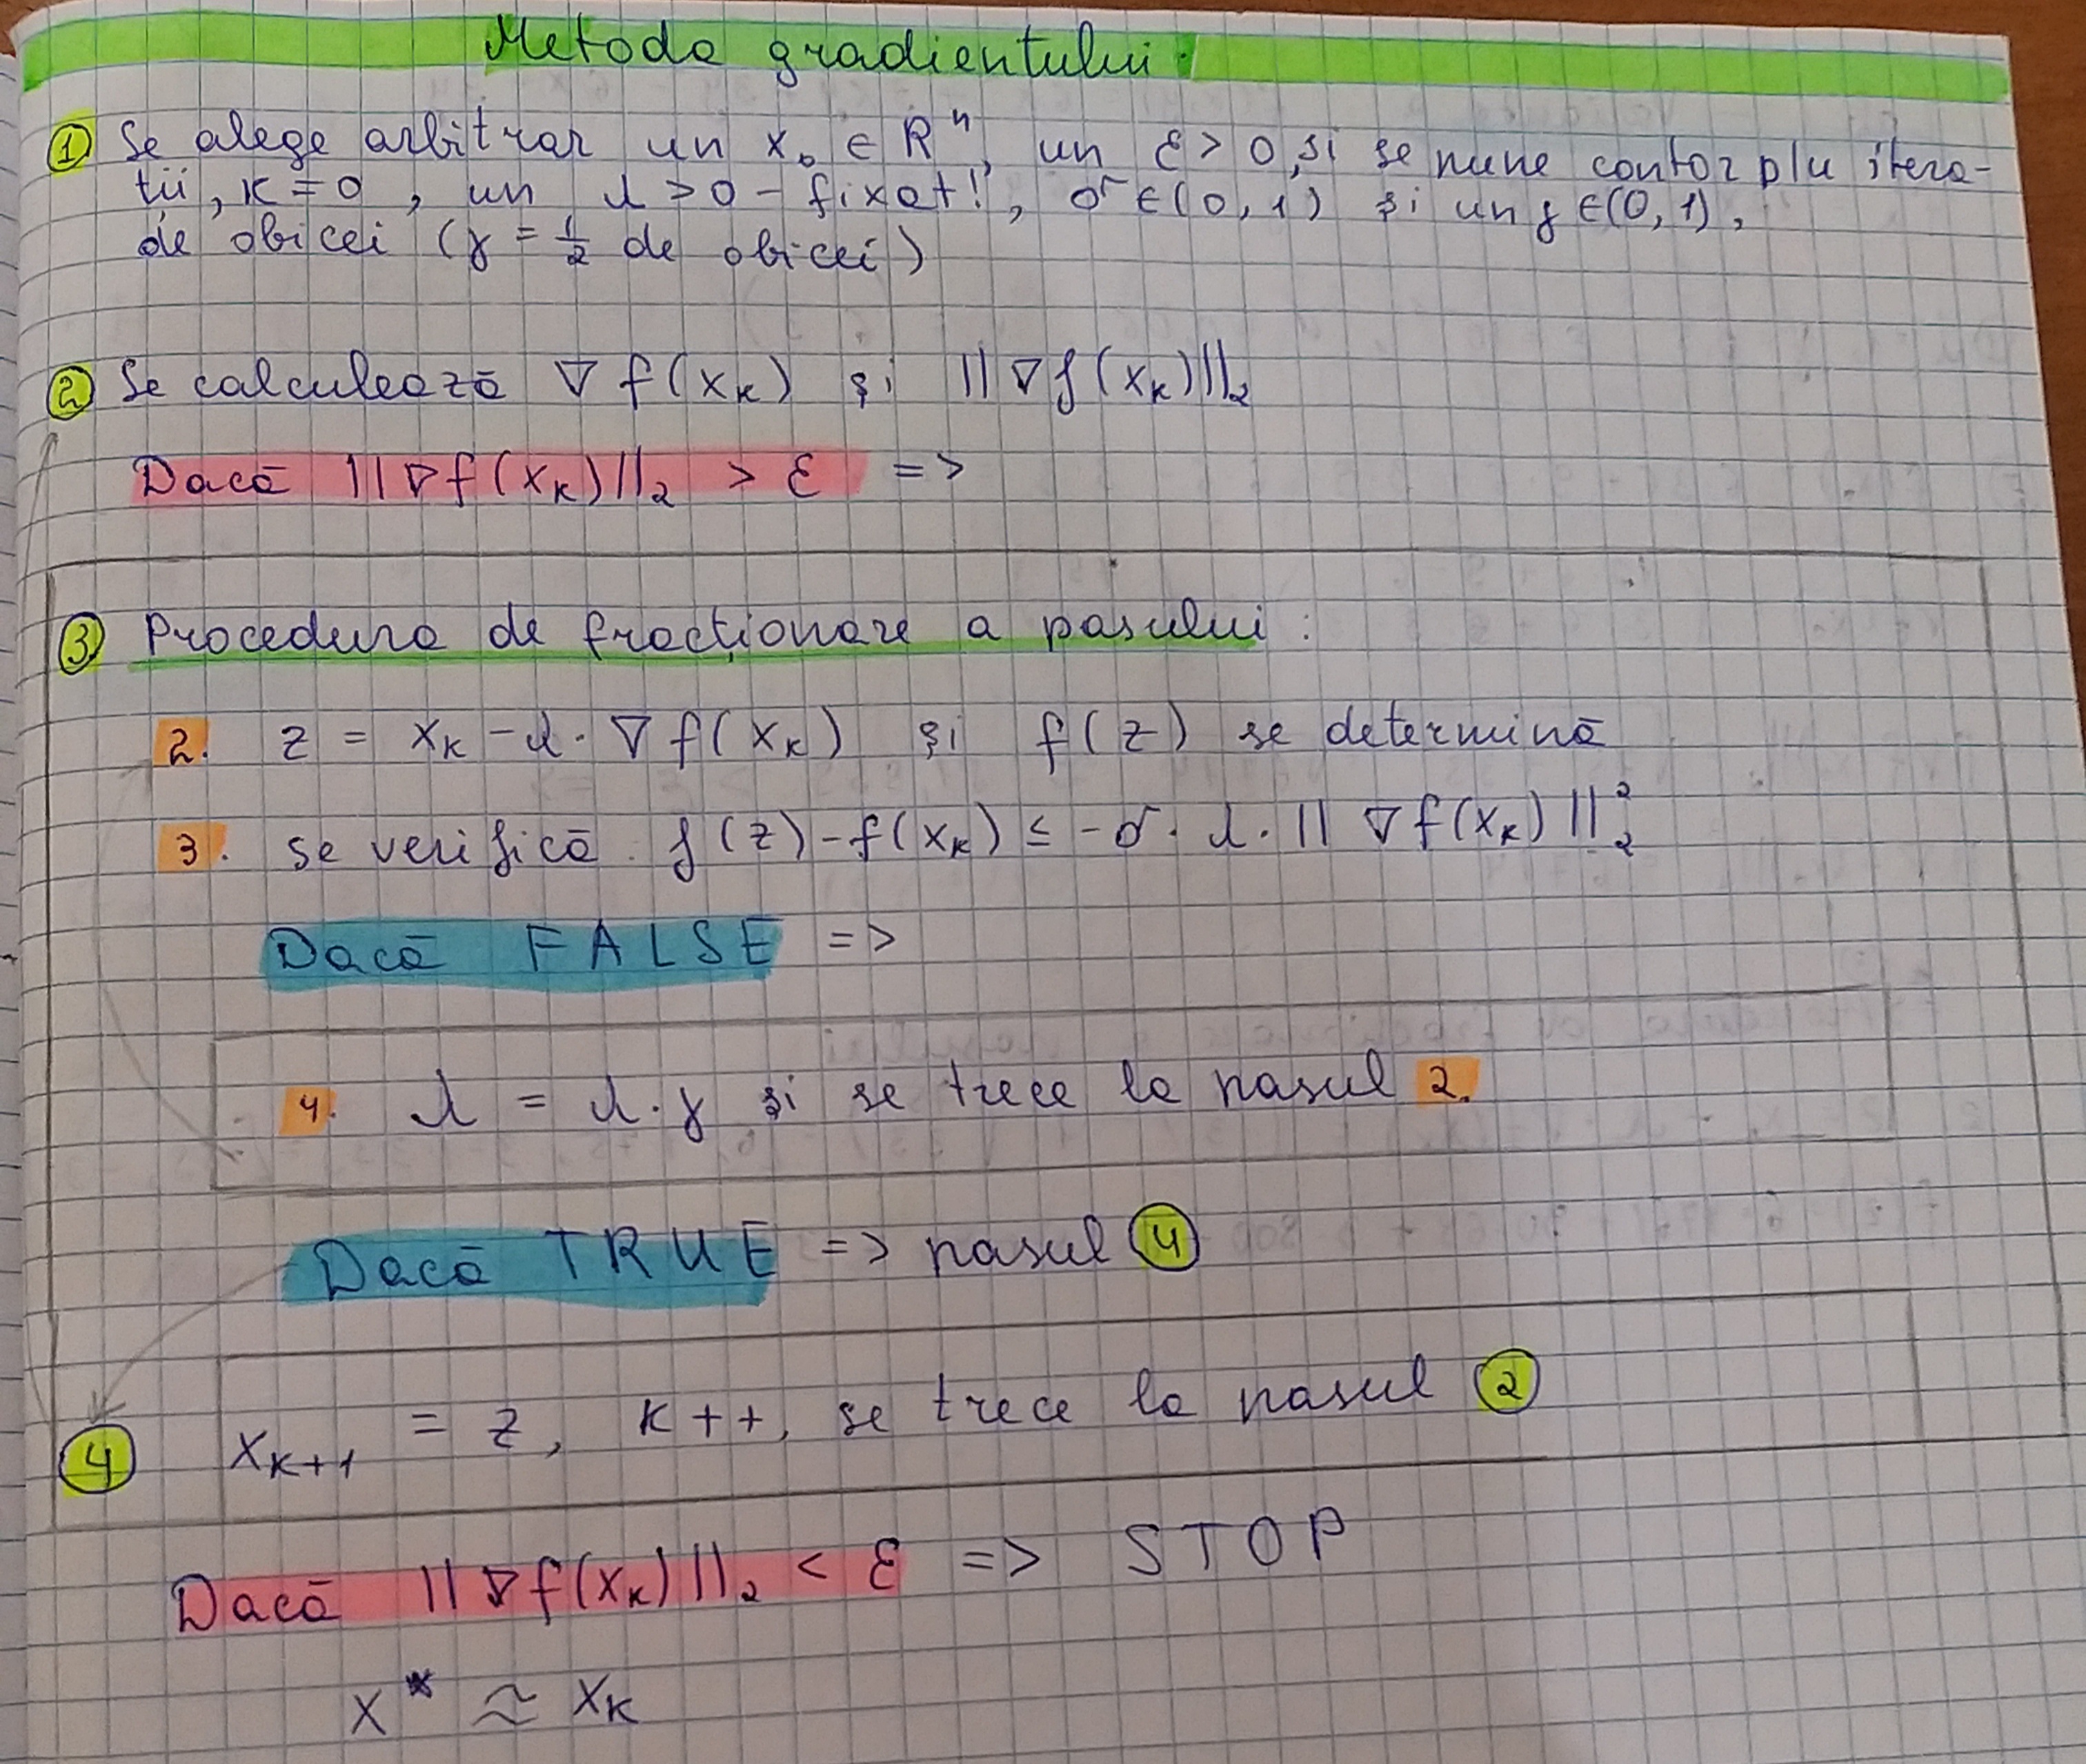 Metoda gradientului
① Se alege arbitrar un x₀ ∈ Rⁿ, un ε > 0, și se pune contor p/u itera-
tii, k = 0, un λ > 0 - fixat!, σ ∈ (0, 1) și un γ ∈ (0, 1),
de obicei (γ = 1/2 de obicei)
② Se calculează ∇ f(xₖ) și ||∇ f(xₖ)||₂
Dacă ||∇ f(xₖ)||₂ > ε =>
③ Procedura de fracționare a pasului:
2. z = xₖ - λ · ∇ f(xₖ) și f(z) se determină
3. se verifică f(z) - f(xₖ) ≤ -σ · λ · ||∇ f(xₖ)||₂²
Dacă FALSE =>
4. λ = λ · γ și se trece la pasul 2.
Dacă TRUE => pasul ④
④ xₖ₊₁ = z, k++, se trece la pasul ②
Dacă ||∇ f(xₖ)||₂ < ε => STOP
x* ≈ xₖ